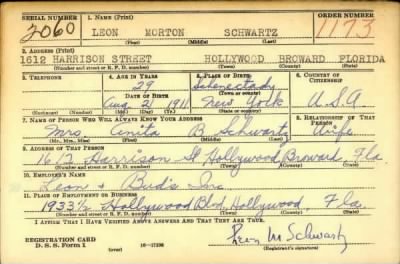 SERIAL NUMBER 1. NAME (Print) ORDER NUMBER
2060 LEON MORTON SCHWARTZ 1173
(First) (Middle) (Last)
2. ADDRESS (Print)
1612 HARRISON STREET HOLLYWOOD BROWARD FLORIDA
(Number and street or R. F. D. number) (Town) (County) (State)
3. TELEPHONE 4. AGE IN YEARS 5. PLACE OF BIRTH 6. COUNTRY OF CITIZENSHIP
29 Schenectady
DATE OF BIRTH (Town or county)
Aug. 21 1911 New York U.S.A
(Mo.) (Day) (Yr.) (State or country)
7. NAME OF PERSON WHO WILL ALWAYS KNOW YOUR ADDRESS 8. RELATIONSHIP OF THAT PERSON
Mrs. Anita B Schwartz Wife
(Mr., Mrs., Miss) (First) (Middle) (Last)
9. ADDRESS OF THAT PERSON
1612 Harrison St Hollywood Broward Fla
(Number and street or R. F. D. number) (Town) (County) (State)
10. EMPLOYER'S NAME
Leon & Bud's Inc.
11. PLACE OF EMPLOYMENT OR BUSINESS
1933½ Hollywood Blvd. Hollywood Fla.
(Number and street or R. F. D. number) (Town) (County) (State)
I AFFIRM THAT I HAVE VERIFIED ABOVE ANSWERS AND THAT THEY ARE TRUE.
REGISTRATION CARD
D. S. S. Form 1 (over) 16—17105 Leon M Schwartz
(Registrant's signature)